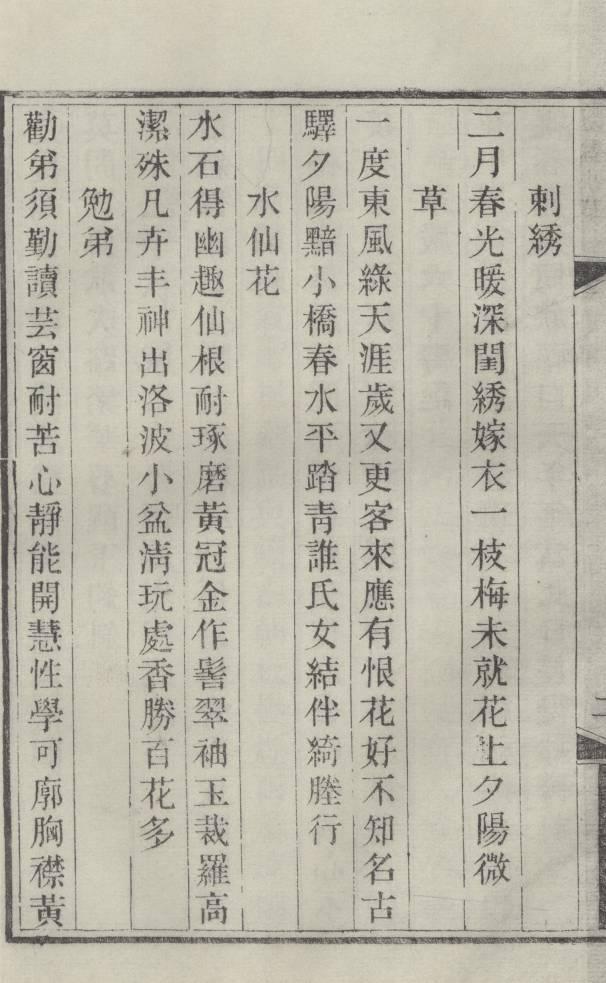 刺綉
二月春光暖深閨綉嫁衣一枝梅未就花上夕陽微
草
一度東風綠天涯歲又更客來應有恨花好不知名古
驛夕陽黯小橋春水平踏青誰氏女結伴綺塍行
水仙花
水石得幽趣仙根耐琢磨黃冠金作髻翠袖玉裁羅高
潔殊凡卉丰神出洛波小盆淸玩處香勝百花多
勉弟
勸弟須勤讀芸窗耐苦心靜能開慧性學可廓胸襟黃